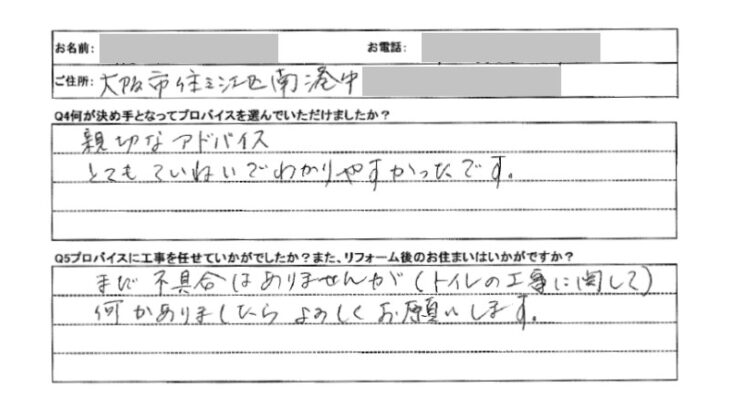 お名前: お電話:
ご住所: 大阪市住之江区南港中
Q4何が決め手となってプロバイスを選んでいただけましたか?
親切なアドバイス
とてもていねいでわかりやすかったです。
Q5プロバイスに工事を任せていかがでしたか?また、リフォーム後のお住まいはいかがですか?
まだ不具合はありませんが(トイレの工事に関して)
何かありましたらよろしくお願いします。